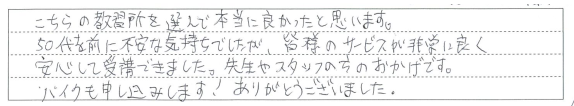 こちらの教習所を選んで本当に良かったと思います。
50代を前に不安な気持ちでしたが、皆様のサービスが非常に良く
安心して受講できました。先生やスタッフの方のおかげです。
バイクも申し込みします！ありがとうございました。